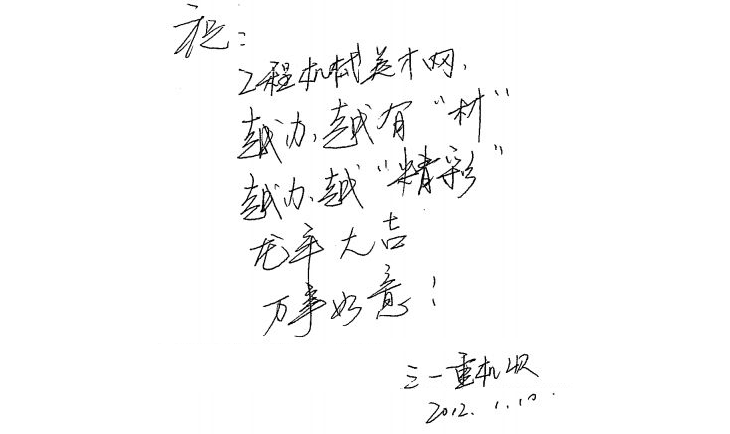 祝：
工程机械英才网，
越办，越有“材”
越办，越“精彩”
龙年大吉
万事如意！
三一重机
2012.1.10.